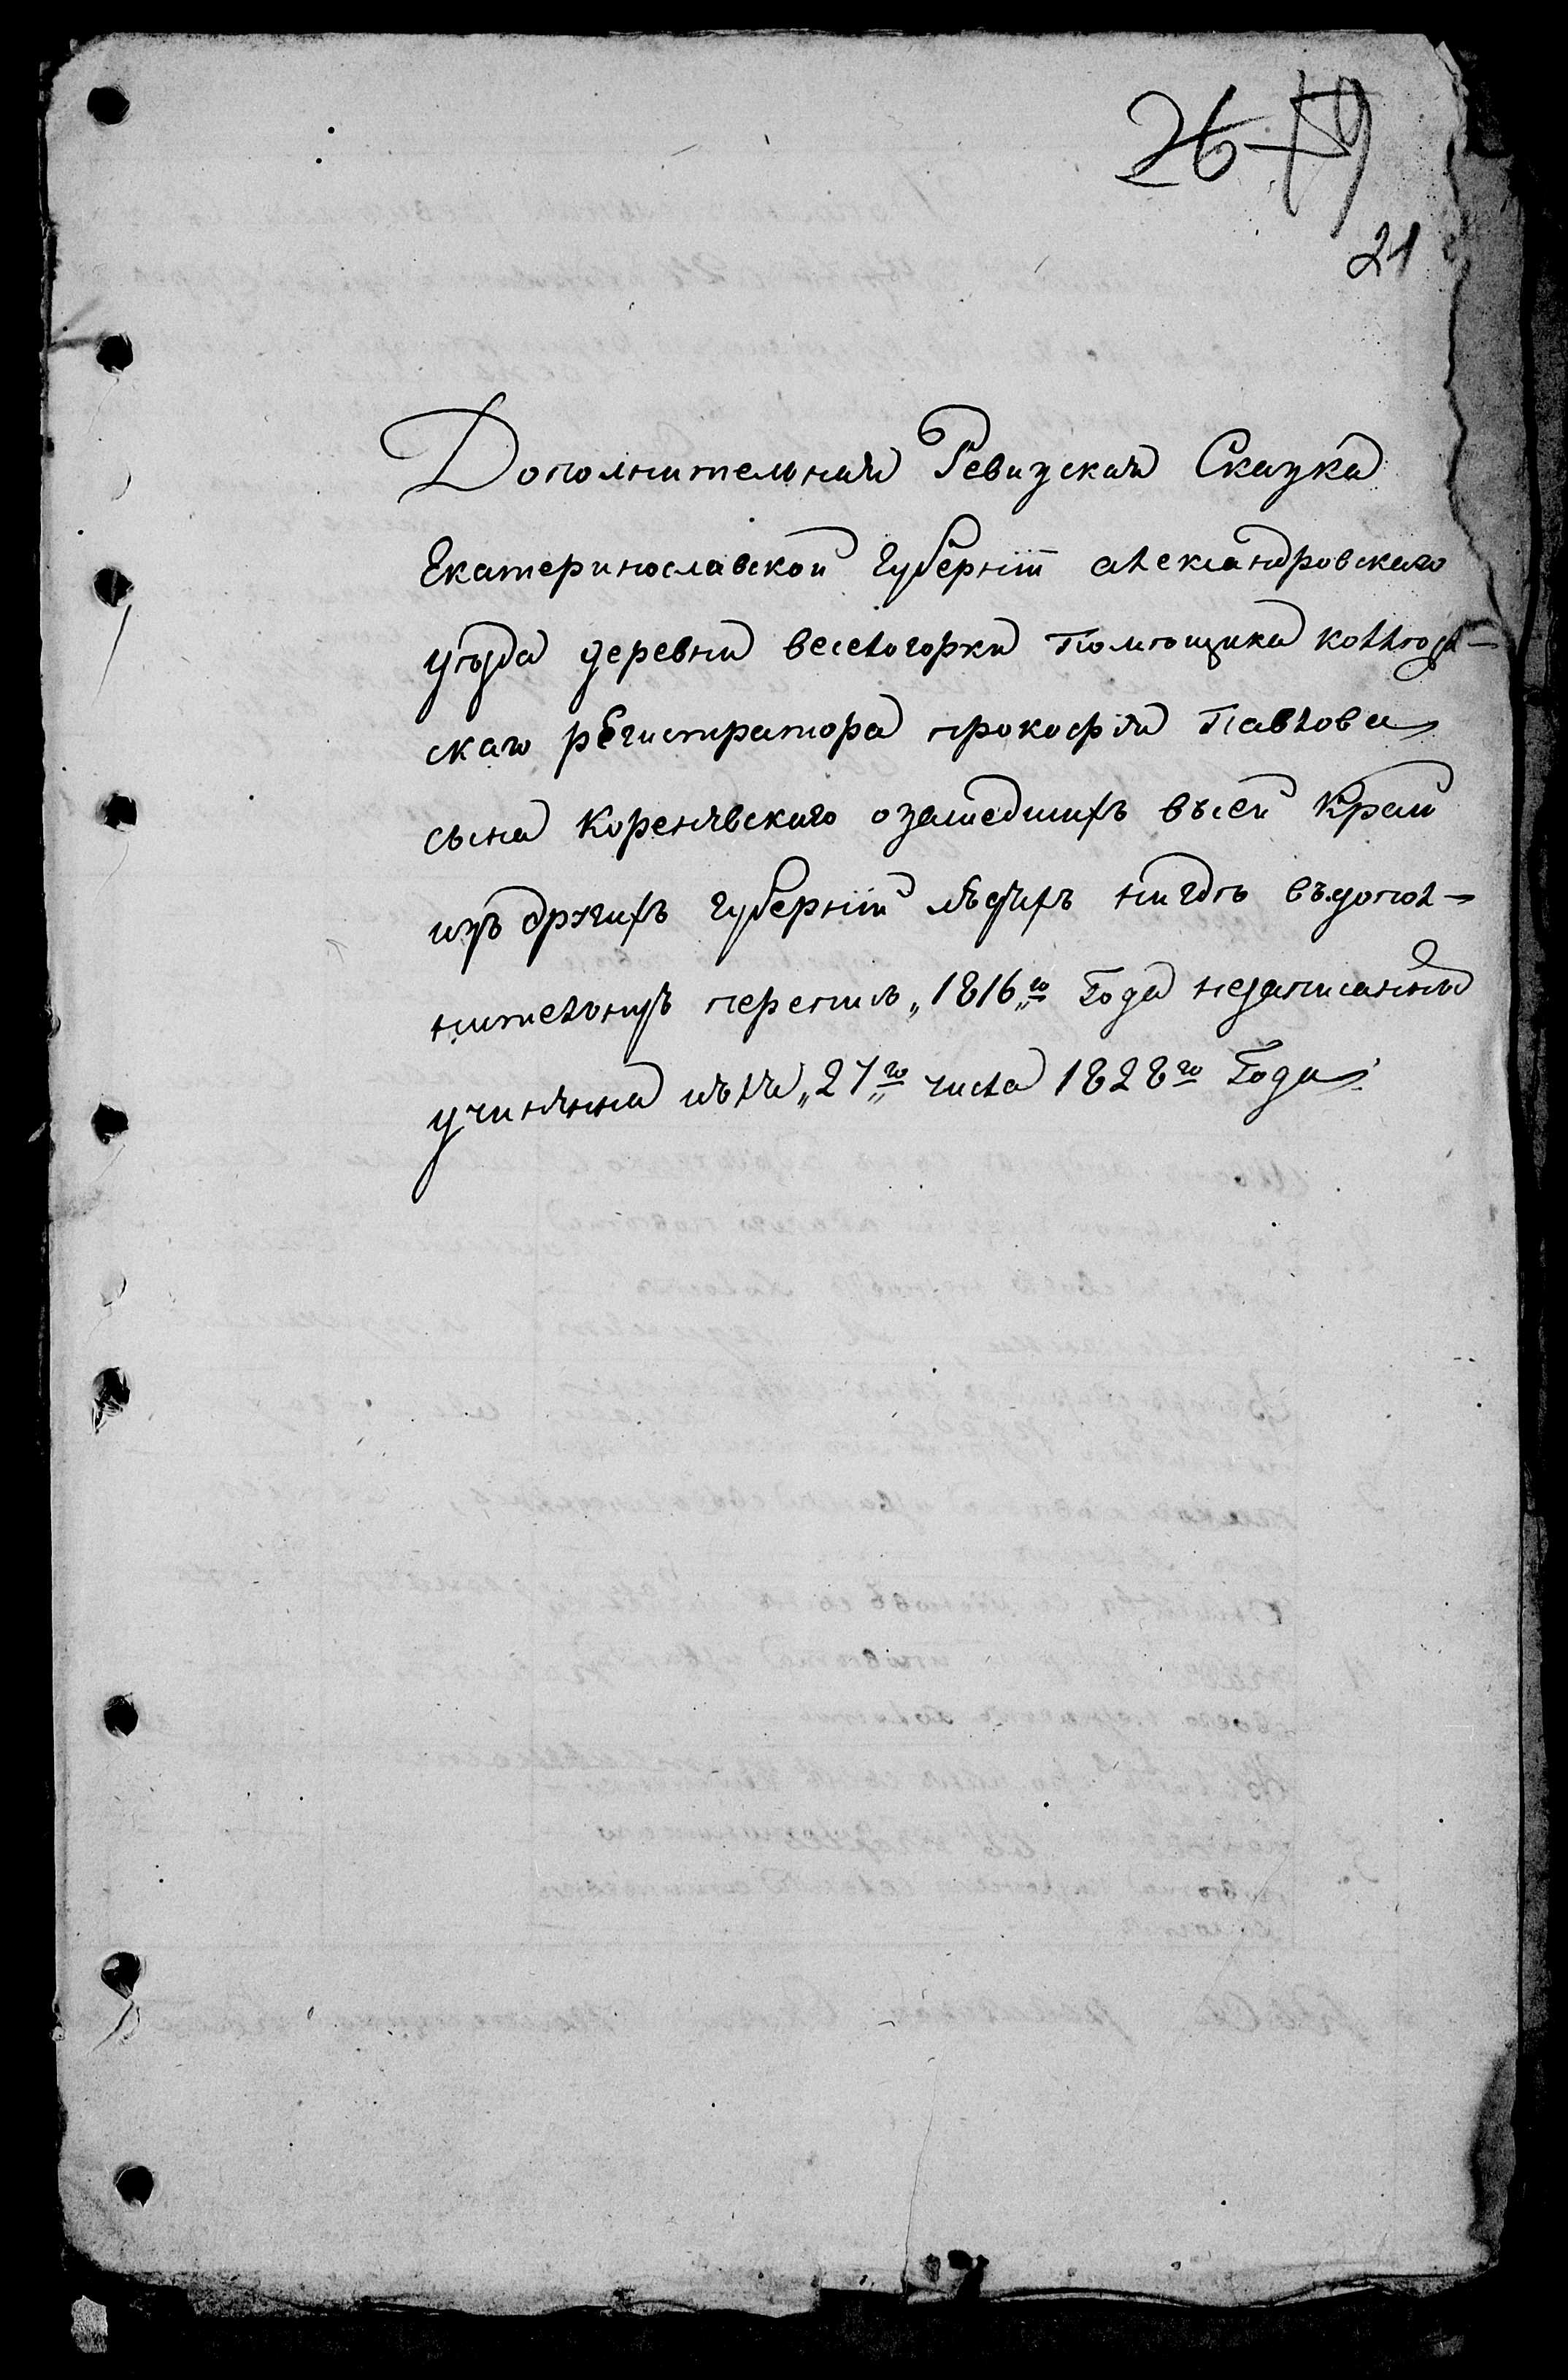 26 19
21
Дополнительная Ревизская Сказка
Екатеринославской Губернїи Александровскаго
уѣзда деревни веселогорки Помѣщика коллѣж-
скаго регистратора прокофїя Павлова
сына Коренявскаго озашедшихъ въсей Край
изъ другихъ губернїй людяхъ нигдѣ въдопол-
нительную перепись „1816„го Года незаписанных
учинянна июля „21„го числа 1828го Года